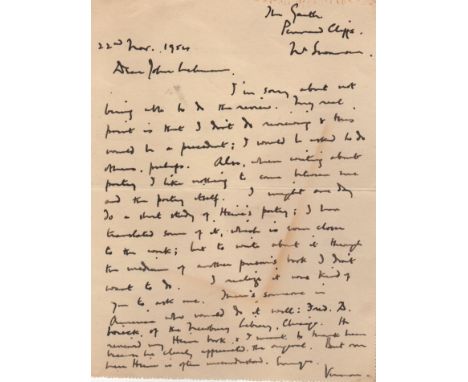 The Garth,
Pennard Cliffs,
Nr Swansea
22nd Nov. 1954
Dear John Lehmann,
I'm sorry about not
being able to do the review. My real
point is that I don't do reviewing & this
would be a precedent; I would be asked to do
others, perhaps. Also, when writing about
poetry I like nothing to come between me
and the poetry itself. I might one day
do a short study of Heine's poetry; I have
translated some of it, which is even closer
to the work; but to write about it through
the medium of another person's book I don't
want to do. I realize it was kind of
you to ask me. There's someone in
America who would do it well: Fred. B.
of the Newberry Library, Chicago. He
reviewed my Heine book & I wrote to thank him
because he clearly appreciated the original. But
here Heine is often misunderstood.
Vernon